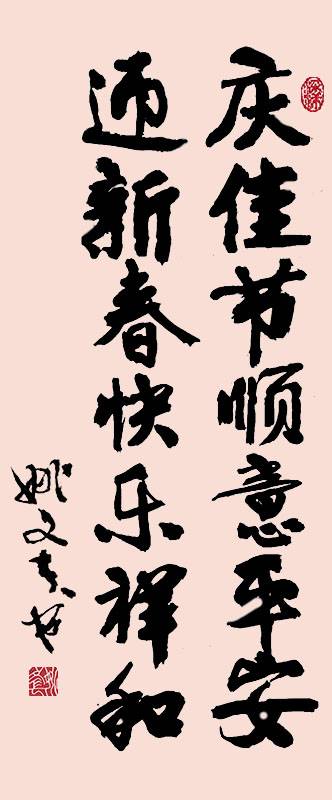 庆佳节顺意平安
迎新春快乐祥和
姚文